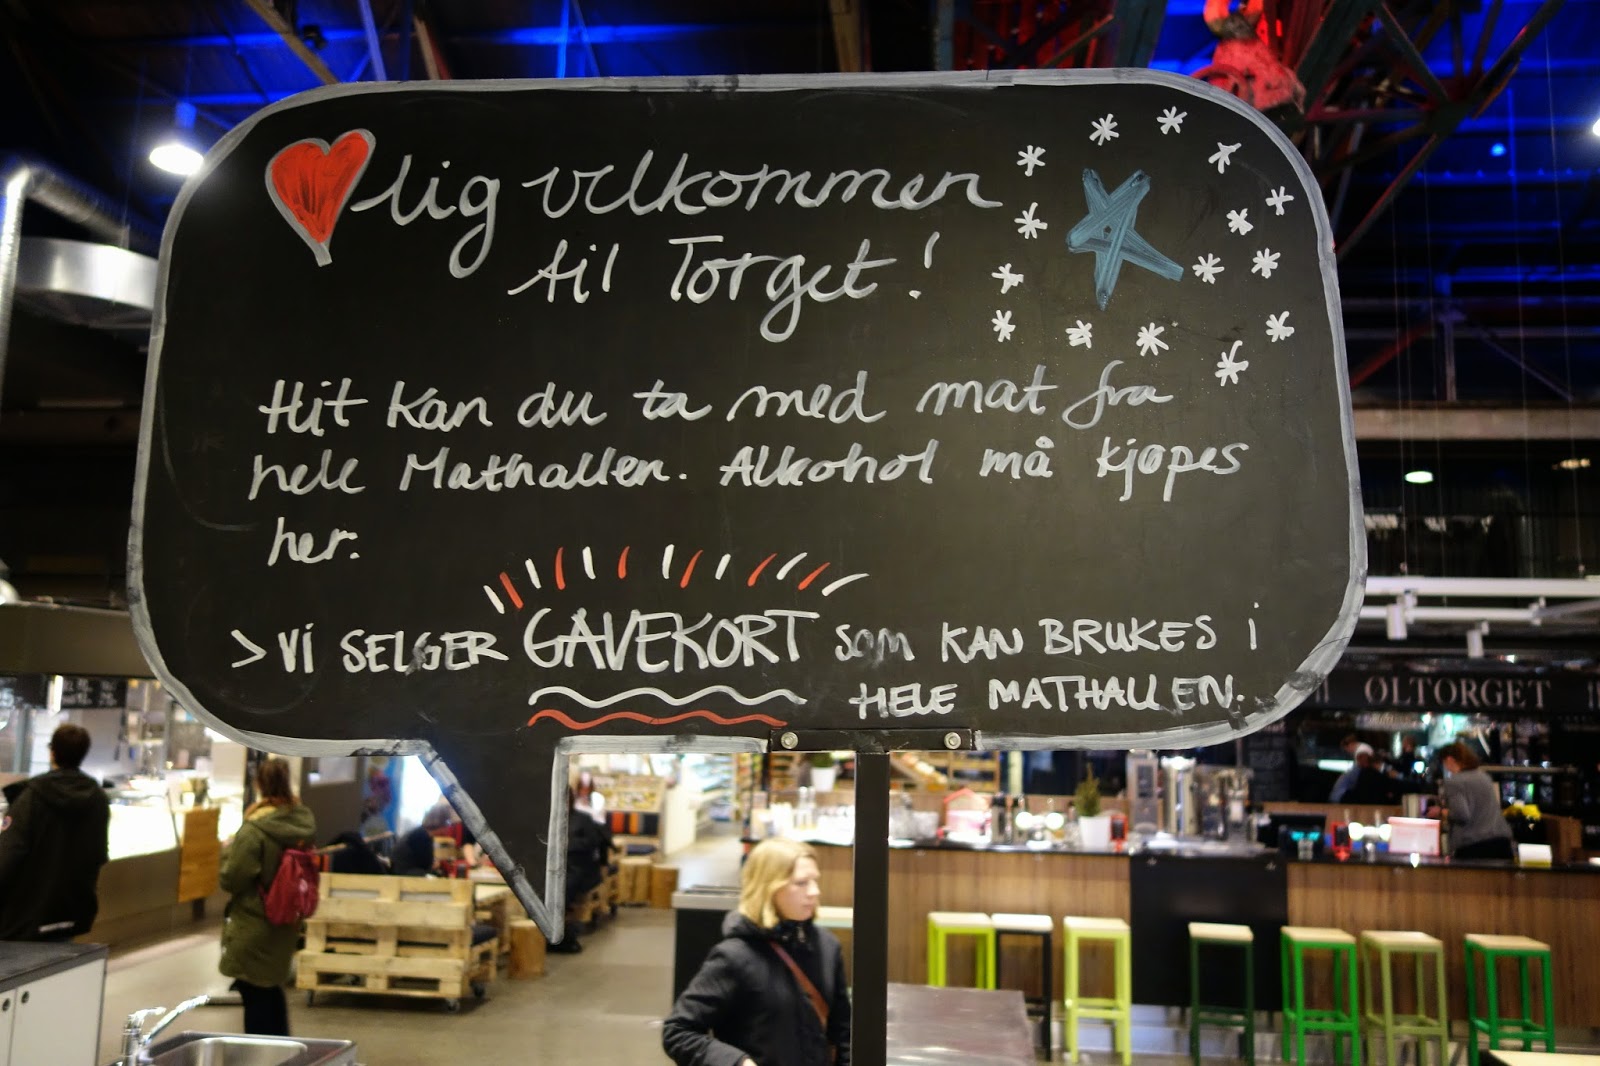 ❤lig velkommen
til Torget!
Hit kan du ta med mat fra
hele Mathallen. Alkohol må kjøpes
her.
> Vi SELGER GAVEKORT som KAN BRUKES i
HELE MATHALLEN.
ØLTORGET